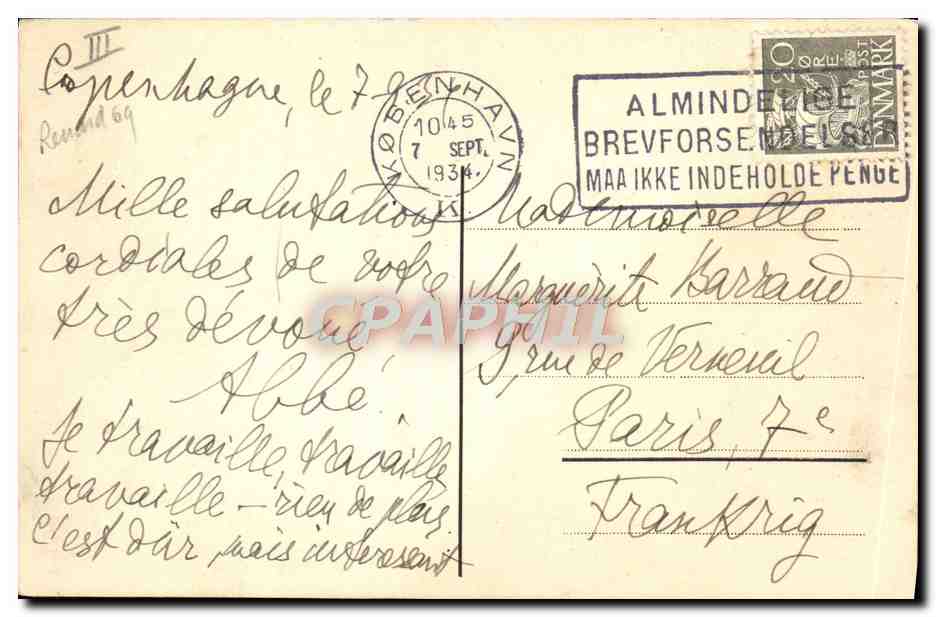 III
Copenhague, le 7 9
Renard 69
KØBENHAVN
1045
7 SEPT.
1934.
K
20 ØRE
POST
DANMARK
ALMINDELIGE
BREVFORSENDELSER
MAA IKKE INDEHOLDE PENGE
Mille salutations
cordiales de votre
très dévoué
Abbé.
Je travaille, travaille
travaille – rien de plus,
c'est dûr, mais intéressant
Mademoiselle
Marguérite Barraud
9, rue de Verneuil
Paris, 7e
Frankrig
CPAPHIL